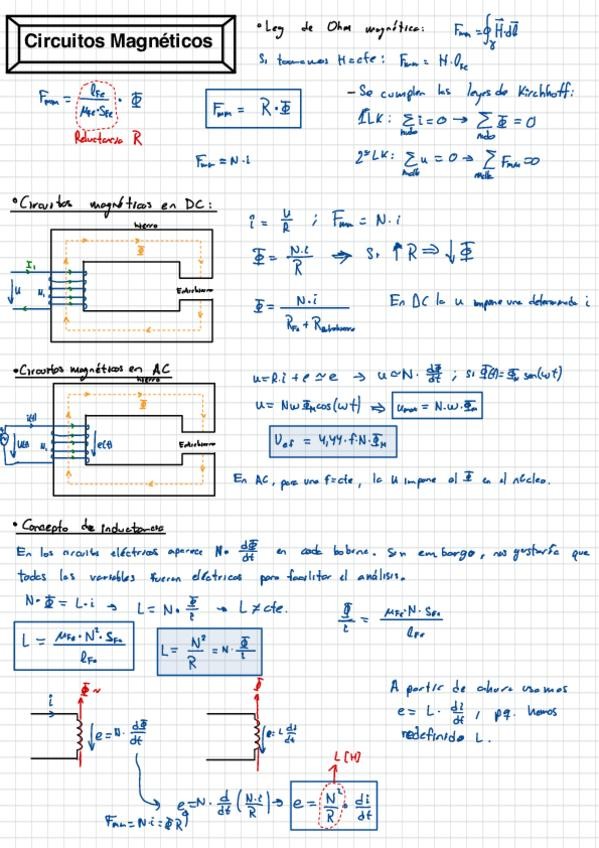 Circuitos Magnéticos
• Ley de Ohm magnética: Fmm = ∮γ H·dl
Si tomamos H=cte: Fmm = H·lFe
Fmm = lFe / (μFe·SFe) · Φ
Reluctancia R
Fmm = R·Φ
Fmm = N·i
- Se cumplen las leyes de Kirchhoff:
1ªLK: Σnudo i = 0 → Σnudo Φ = 0
2ªLK: Σmalla u = 0 → Σmalla Fmm = 0
• Circuitos magnéticos en DC:
hierro
Φ
I1
u
N1
Entrehierro
i = u/R ; Fmm = N·i
Φ = N·i / R → Si ↑R ⇒ ↓Φ
Φ = N·i / (RFe + REntrehierro)
En DC la u impone una determinada i
• Circuitos magnéticos en AC
hierro
Φ
i(t)
u(t)
N1
e(t)
Entrehierro
u = R·i + e ≃ e → u ≃ N·dΦ/dt ; si Φ(t) = ΦM sen(ωt)
u = NωΦM cos(ωt) ⇒ umax = N·ω·ΦM
Uef = 4,44·f·N·ΦM
En AC, para una f=cte, la u impone el Φ en el núcleo.
• Concepto de inductancia
En los circuitos eléctricos aparece N·dΦ/dt en cada bobina. Sin embargo, nos gustaría que
todas las variables fueran eléctricas para facilitar el análisis.
N·Φ = L·i → L = N·Φ/i → L ≠ cte.
Φ/i = μFe·N·SFe / lFe
L = μFe·N²·SFe / lFe
L = N²/R = N·Φ/i
Φ ~
i
e = N·dΦ/dt
Φ
e = L di/dt
A partir de ahora usamos
e = L·di/dt, pq. hemos
redefinido L.
L [H]
e = N·d/dt (N·i/R) → e = N²/R · di/dt
Fmm = N·i = ΦR